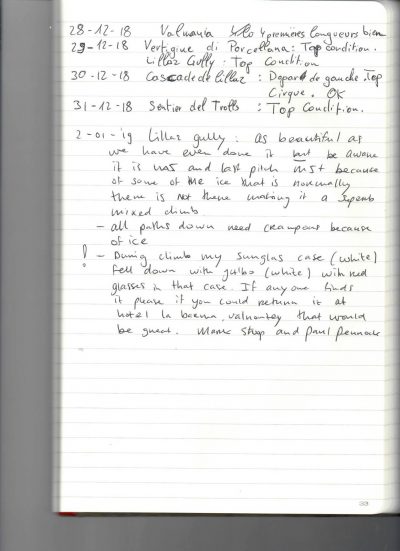 28-12-18 Valmiana 4 premières longueurs bien
29-12-18 Vertigine di Porcellana: Top condition.
Lillaz Gully: Top Condition
30-12-18 Cascade de Lillaz : Depart de gauche. Top
Cirque. OK
31-12-18 Sentier del Trolls : Top Condition.
2-01-19 Lillaz gully: as beautiful as
we have even done it but be aware
it is M5 and last pitch M5+ because
of some of the ice that is normally
there is not there making it a superb
mixed climb
- all paths down need crampons because
of ice
! - During climb my sunglas case (white)
fell down with julbo (white) with red
glasses in that case. If anyone finds
it please if you could return it at
hotel la barme, valnontey that would
be great. and Paul
33